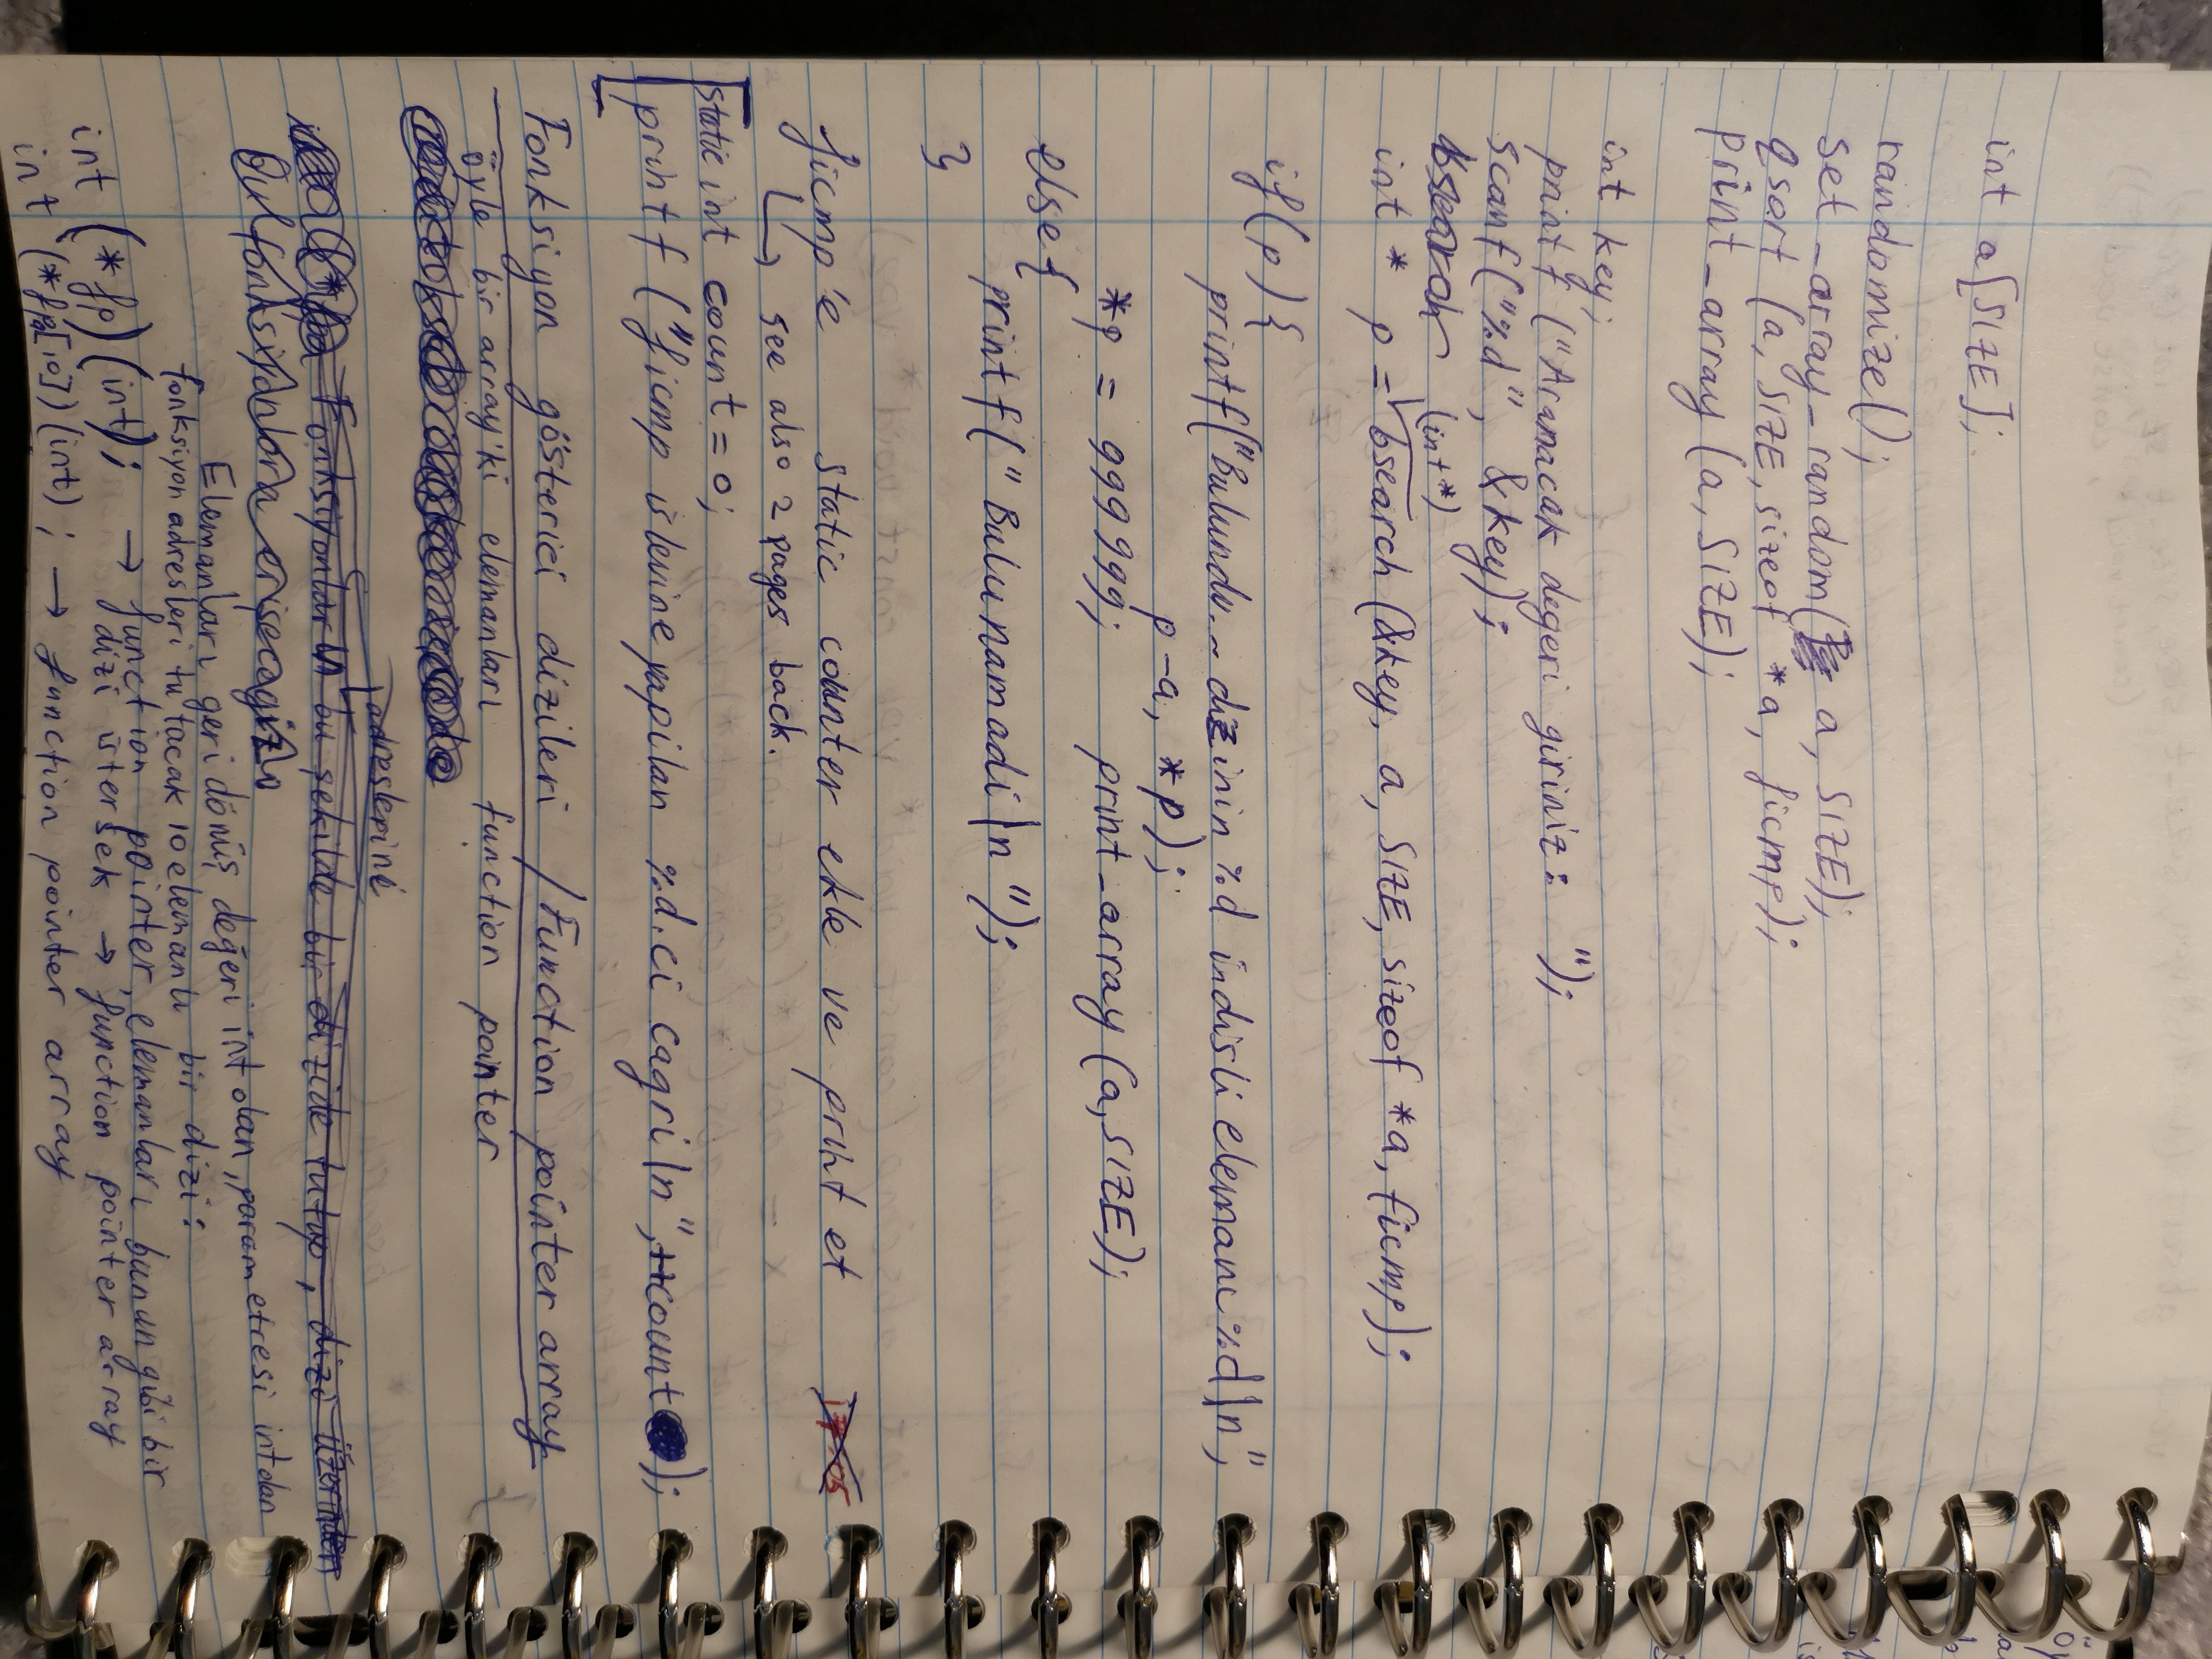 int a[SIZE];
randomize();
set_array_random( a, SIZE);
qsort (a, SIZE, sizeof *a, ficmp);
print_array (a, SIZE);
int key;
printf ("Aranacak degeri giriniz: ");
scanf("%d", &key);
bsearch (int*)
int * p = bsearch (&key, a, SIZE, sizeof *a, ficmp);
if(p){
printf("Bulundu.. dizinin %d indisli elemanı %d\n",
p-a, *p);
*p = 999999; print_array (a,SIZE);
else{
printf("Bulunamadi\n");
}
ficmp'e static counter ekle ve print et 17.05
see also 2 pages back.
static int count = 0;
printf ("ficmp islevine yapilan %d.ci cagri\n", ++count);
Fonksiyon gösterici dizileri / Function pointer array
öyle bir array'ki elemanları function pointer
adreslerini
Fonksiyonların bu şekilde bir dizide tutup, dizi üzerinden
fonksiyonlara erişecegiz.
Elemanları geri dönüş değeri int olan, parametresi int olan
fonksiyon adresleri tutacak 10 elemanlı bir dizi:
int (*fp)(int); → function pointer, elemanları bunun gibi bir
dizi istersek → function pointer array
int (*fpa[10])(int); → function pointer array